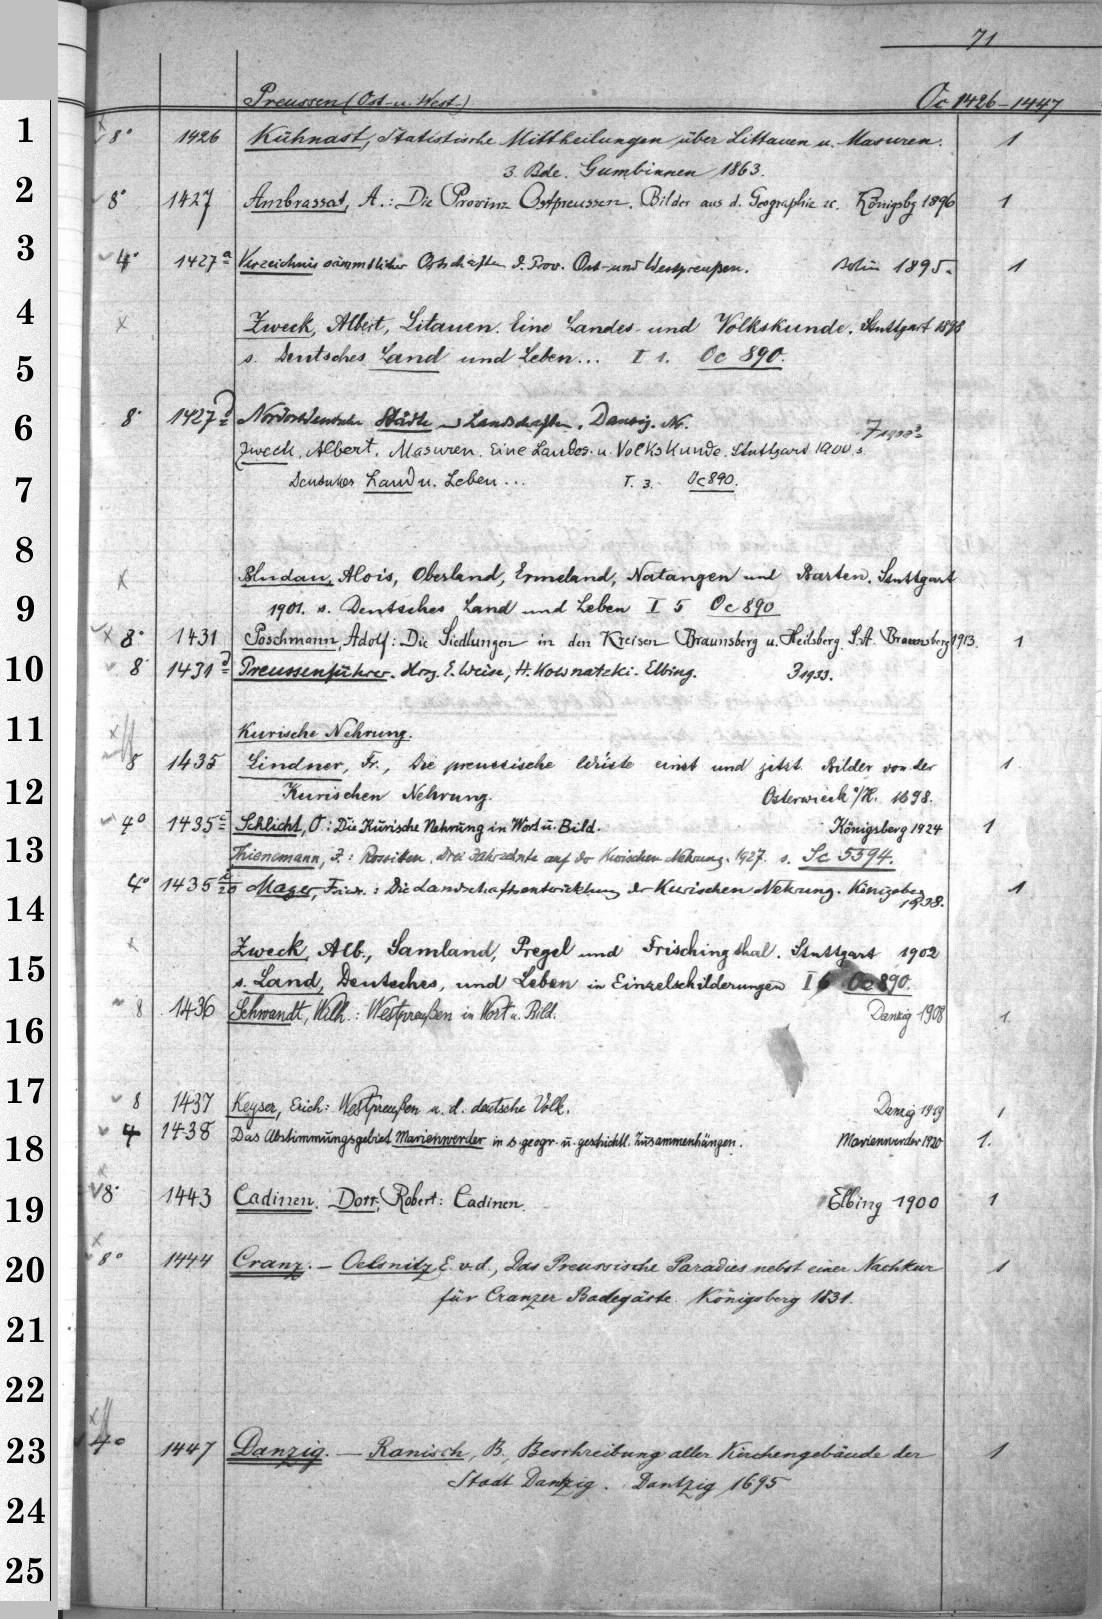 71
Preussen (Ost- u. West-) Oc 1426-1447
1 8° 1426 Kühnast, Statistische Mittheilungen über Littauen u. Masuren. 1
3 Bde. Gumbinnen 1863.
2 8° 1427 Ambrassat, A.: Die Provinz Ostpreussen. Bilder aus d. Geographie etc. Königsbg 1896 1
3 4° 1427a Verzeichnis sämmtlicher Ortschaften d. Prov. Ost- und Westpreußen. Berlin 1895. 1
4 x Zweck, Albert, Litauen. Eine Landes- und Volkskunde. Stuttgart 1898
5 s. Deutsches Land und Leben... I 1. Oc 890.
6 8° 1427d Nordostdeutsche Städte u Landschaften. Danzig.
Zweck, Albert. Masuren. Eine Landes- u. Volkskunde. Stuttgart 1900. s.
7 Deutsches Land u. Leben... I. 3. Oc 890.
8
x Bludau, Alois, Oberland, Ermeland, Natangen und Barten. Stuttgart
9 1901. s. Deutsches Land und Leben I 5 Oc 890
x 8° 1431 Poschmann, Adolf: Die Siedlungen in den Kreisen Braunsberg u. Heilsberg. S.A. Braunsberg 1913. 1
10 8° 1431d Preussenführer. Hrsg. E. Weise, H. Kownatzki. Elbing. 3 1933.
11 Kurische Nehrung.
8 1435 Lindner, Fr., Die preussische Wüste einst und jetzt. Bilder von der 1.
12 Kurischen Nehrung. Osterwieck a/H. 1898.
4° 1435 Schlicht, O.: Die Kurische Nehrung in Wort u. Bild. Königsberg 1924 1
13 Thienemann, J.: Rossitten. Drei Jahrzehnte auf der Kurischen Nehrung. 1927. s. Sc 5594.
4° 1435 20 Mager, Friedr.: Die Landschaftsentwicklung der Kurischen Nehrung. Königsberg 1
14 1938.
x Zweck, Alb., Samland, Pregel und Frischingthal. Stuttgart 1902
15 s. Land, Deutsches, und Leben in Einzelschilderungen I 6 Oc 890.
8 1436 Schwandt, Wilh.: Westpreußen in Wort u. Bild. Danzig 1908 1.
16
17 8 1437 Keyser, Erich: Westpreußen u. d. deutsche Volk. Danzig 1919 1
18 4 1438 Das Abstimmungsgebiet Marienwerder in s. geogr. u. geschichtl. Zusammenhängen. Marienwerder 1920 1.
19 8° 1443 Cadinen. Dorr, Robert: Cadinen. Elbing 1900 1
20 8° 1444 Cranz. – Oelsnitz, E. v. d., Das Preussische Paradies nebst einer Nachkur 1
für Cranzer Badegäste. Königsberg 1831.
21
22
23 4° 1447 Danzig. – Ranisch, B., Beschreibung aller Kirchengebäude der 1
Stadt Dantzig. Dantzig 1695
24
25